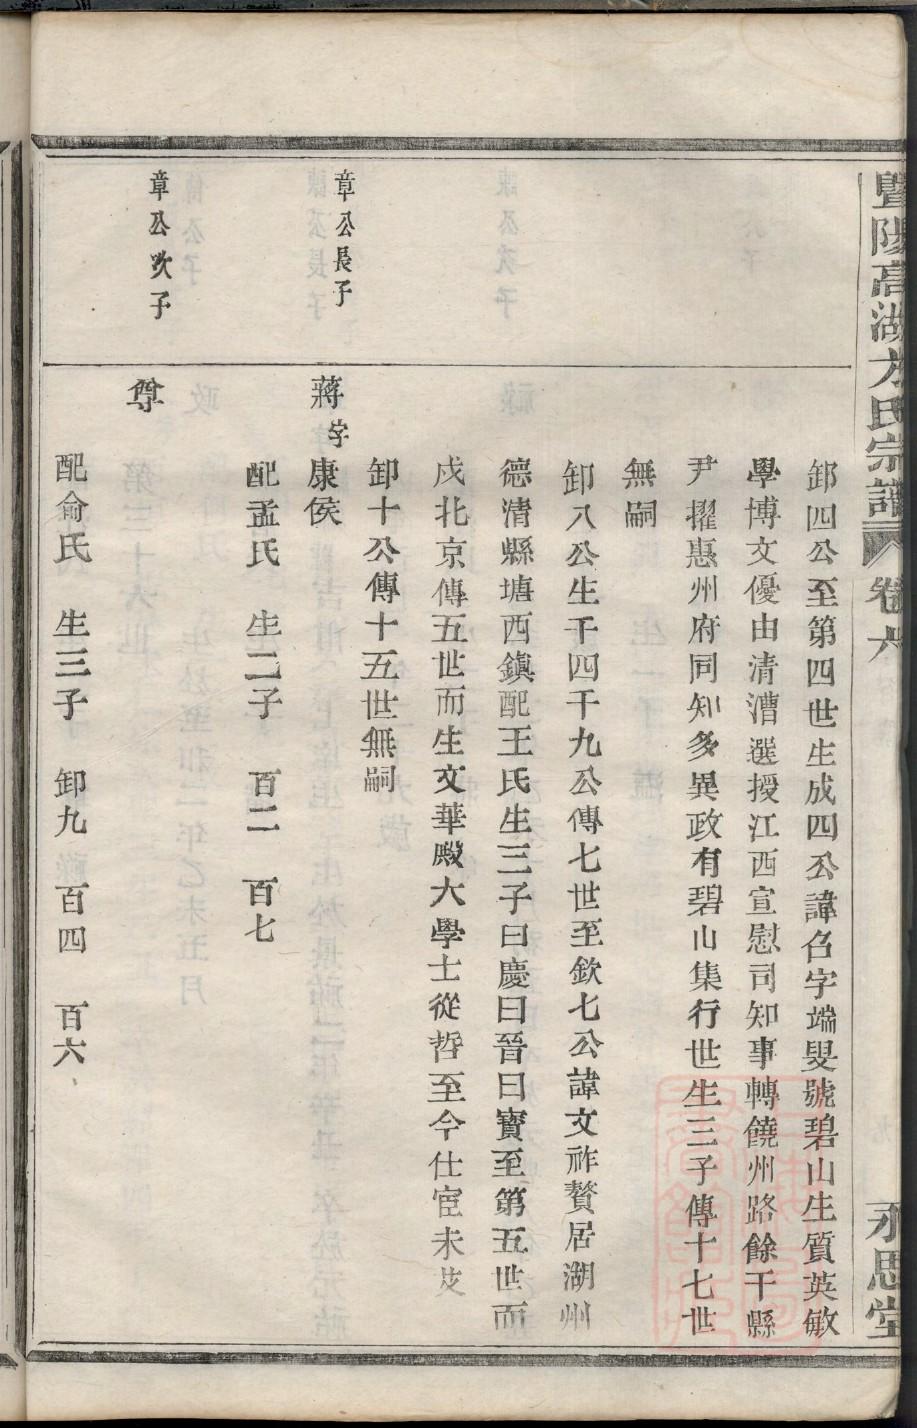 暨陽高湖方氏宗譜 卷六 永思堂
卸四公至第四世生成四公諱名字端旻號碧山生質英敏
學博文優由清漕選授江西宣慰司知事轉饒州路餘干縣
尹擢惠州府同知多異政有碧山集行世生三子傳十七世
無嗣
卸八公生千四千九公傳七世至欽七公諱文祚贅居湖州
德清縣塘西鎮配王氏生三子曰慶曰晉曰寶至第五世而
戍北京傳五世而生文華殿大學士從哲至今仕宦未艾
卸十公傳十五世無嗣
章公長子
蔣字康侯
配孟氏 生二子 百二 百七
章公次子
尊
配俞氏 生三子 卸九 百四 百六